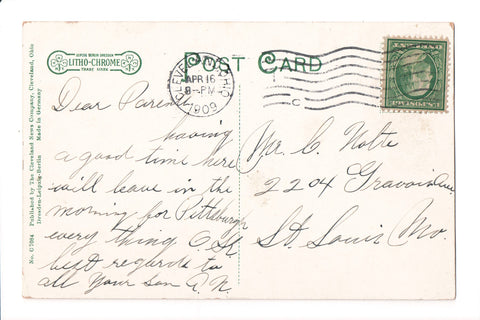 LEIPZIG BERLIN DRESDEN
LITHO-CHROME
TRADE MARK
POST CARD
CLEVELAND, OHIO
APR 16
8-PM
1909
C
Dear Parents
having
a good time here
will leave in the
morning for Pittsburgh
every thing O.K.
best regards to
all Your son A.N.
Mr. C. Notre
2204 Gravois Ave.
St. Louis Mo.
No. C7084 Published by The Cleveland News Company, Cleveland, Ohio
Dresden-Leipzig-Berlin Made in Germany